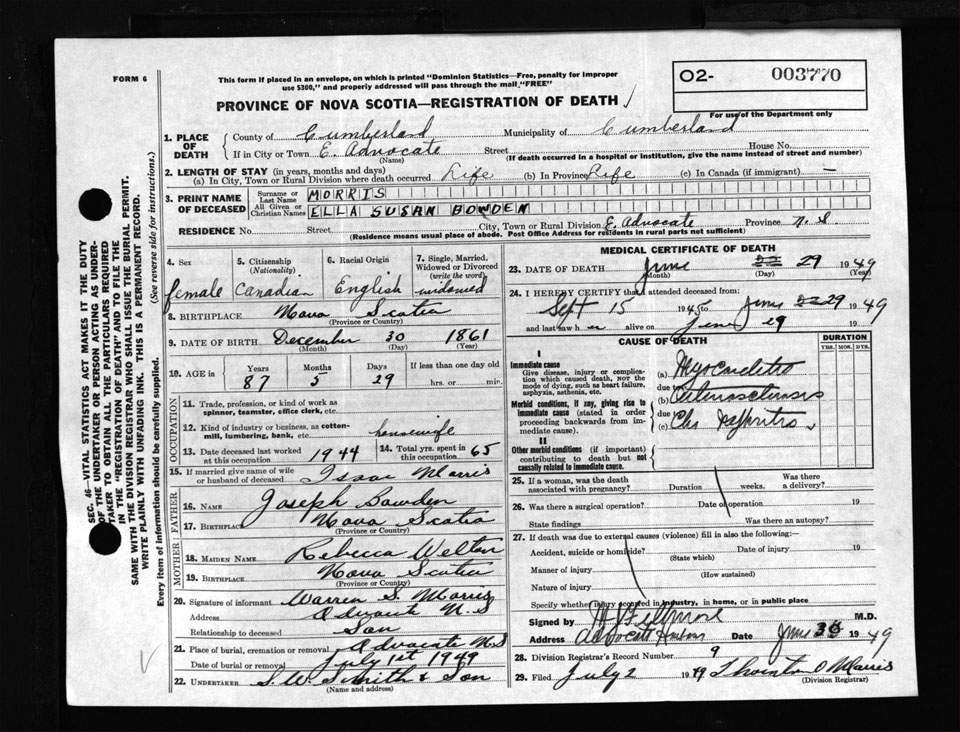 FORM 6
This form if placed in an envelope, on which is printed "Dominion Statistics—Free, penalty for improper
use $300," and properly addressed will pass through the mail "FREE"
O2- 003770
For use of the Department only
PROVINCE OF NOVA SCOTIA—REGISTRATION OF DEATH
1. PLACE OF DEATH
County of Cumberland Municipality of Cumberland
If in City or Town E. Advocate Street House No.
(Name) (If death occurred in a hospital or institution, give the name instead of street and number)
2. LENGTH OF STAY (in years, months and days)
(a) In City, Town or Rural Division where death occurred Life (b) In Province Life (c) In Canada (if immigrant) —
3. PRINT NAME OF DECEASED
Surname or Last Name MORRIS
All Given or Christian Names ELLA SUSAN BOWDEN
RESIDENCE No. Street City, Town or Rural Division E. Advocate Province N.S
(Residence means usual place of abode. Post Office Address for residents in rural parts not sufficient)
4. Sex female
5. Citizenship (Nationality) Canadian
6. Racial Origin English
7. Single, Married, Widowed or Divorced (write the word) widowed
8. BIRTHPLACE Nova Scotia
(Province or Country)
9. DATE OF BIRTH December 30 1861
(Month) (Day) (Year)
10. AGE in Years Months Days If less than one day old
87 5 29 hrs. or min.
OCCUPATION
11. Trade, profession, or kind of work as
spinner, teamster, office clerk, etc.
12. Kind of industry or business, as cotton-
mill, lumbering, bank, etc. housewife
13. Date deceased last worked at this occupation 1944
14. Total yrs. spent in this occupation 65
15. If married give name of wife
or husband of deceased Isaac Morris
FATHER
16. NAME Joseph Bowden
17. BIRTHPLACE Nova Scotia
(Province or Country)
MOTHER
18. MAIDEN NAME Rebecca Welton
19. BIRTHPLACE Nova Scotia
(Province or Country)
20. Signature of informant Warren S. Morris
Address Advocate N.S
Relationship to deceased Son
21. Place of burial, cremation or removal Advocate N.S
Date of burial or removal July 1st 1949
22. UNDERTAKER S. W. Smith & Son
(Name and address)
MEDICAL CERTIFICATE OF DEATH
23. DATE OF DEATH June 29 1949
(Month) (Day) (Year)
24. I HEREBY CERTIFY that I attended deceased from:
Sept 15 1945 to June 29 1949
and last saw her alive on June 29 19
CAUSE OF DEATH
DURATION
YRS. MOS. DYS.
I
Immediate cause
Give disease, injury or complication
which caused death, NOT the
mode of dying, such as heart failure,
asphyxia, asthenia, etc.
(a)
due
(b)
due
(c)
Morbid conditions, if any, giving rise to
immediate cause (stated in order
proceeding backwards from immediate
cause).
II
Other morbid conditions (if important)
contributing to death but not
causally related to immediate cause.
25. If a woman, was the death
associated with pregnancy? Duration weeks. Was there a delivery?
26. Was there a surgical operation? Date of operation 19
State findings Was there an autopsy?
27. If death was due to external causes (violence) fill in also the following:—
Accident, suicide or homicide? Date of injury 19
(State which)
Manner of injury
(How sustained)
Nature of injury
Specify whether injury occurred in industry, in home, or in public place
Signed by M.D.
Address Advocate Harbor Date June 30 1949
28. Division Registrar's Record Number 9
29. Filed July 2 1949 Thornton O Morris
(Division Registrar)
SEC. 46—VITAL STATISTICS ACT MAKES IT THE DUTY
OF THE UNDERTAKER OR PERSON ACTING AS UNDERTAKER
TO OBTAIN ALL THE PARTICULARS REQUIRED
IN THE "REGISTRATION OF DEATH" AND TO FILE THE
SAME WITH THE DIVISION REGISTRAR WHO SHALL ISSUE THE BURIAL PERMIT.
WRITE PLAINLY WITH UNFADING INK. THIS IS A PERMANENT RECORD.
Every item of information should be carefully supplied. (See reverse side for instructions.)